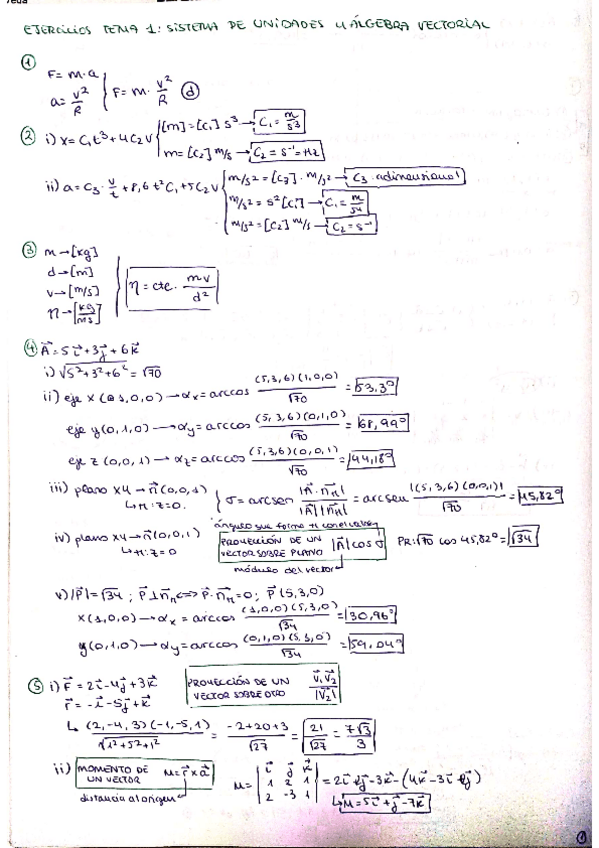 EJERCICIOS TEMA 1: SISTEMA DE UNIDADES Y ÁLGEBRA VECTORIAL
① F = m·a
a = v²/R } F = m· v²/R ⓓ
② i) x = C₁t³ + 4C₂v { [m] = [C₁] s³ → C₁ = m/s³
m = [C₂] m/s → C₂ = s⁻¹ = Hz
ii) a = C₃ · v/t + 8,6 t² C₁ + 5C₂v { m/s² = [C₃] · m/s² → C₃ adimensional
m/s² = s² [C₁] → C₁ = m/s⁴
m/s² = [C₂] m/s → C₂ = s⁻¹
③ m → [kg]
d → [m]
v → [m/s] } η = cte · mv/d²
η → [kg/ms]
④ A⃗ = 5i⃗ + 3j⃗ + 6k⃗
i) √5²+3²+6² = √70
ii) eje x (1,0,0) → αx = arccos (5,3,6)(1,0,0)/√70 = 53,3º
eje y (0,1,0) → αy = arccos (5,3,6)(0,1,0)/√70 = 68,99º
eje z (0,0,1) → αz = arccos (5,3,6)(0,0,1)/√70 = 44,18º
iii) plano xy → n⃗ (0,0,1) { σ = arcsen |A⃗·n⃗π|/|A⃗||n⃗π| = arcsen |(5,3,6)(0,0,1)|/√70 = 45,82º
↳ π: z=0.
ángulo que forma π con el vector
iv) plano xy → n⃗ (0,0,1) PROYECCIÓN DE UN VECTOR SOBRE PLANO |A⃗| cos σ PR: √70 cos 45,82º = √34
↳ π: z=0
módulo del vector
v) |P⃗| = √34 ; P⃗ ⊥ n⃗π ⟺ P⃗ · n⃗π = 0; P⃗ (5,3,0)
x (1,0,0) → αx = arccos (1,0,0)(5,3,0)/√34 = 30,96º
y (0,1,0) → αy = arccos (0,1,0)(5,3,0)/√34 = 59,04º
⑤ i) F⃗ = 2i⃗ - 4j⃗ + 3k⃗ PROYECCIÓN DE UN VECTOR SOBRE OTRO v⃗₁ v⃗₂/|v⃗₂|
r⃗ = -i⃗ - 5j⃗ + k⃗
↳ (2,-4,3)(-1,-5,1)/√1²+5²+1² = -2+20+3/√27 = 21/√27 = 7√3/3
ii) MOMENTO DE UN VECTOR M = r⃗ x a⃗ M = | i⃗ j⃗ k⃗
1 2 1
2 -3 1 | = 2i⃗ + 2j⃗ - 3k⃗ - (4k⃗ - 3i⃗ + j⃗)
distancia al origen
↳ M = 5i⃗ + j⃗ - 7k⃗
①